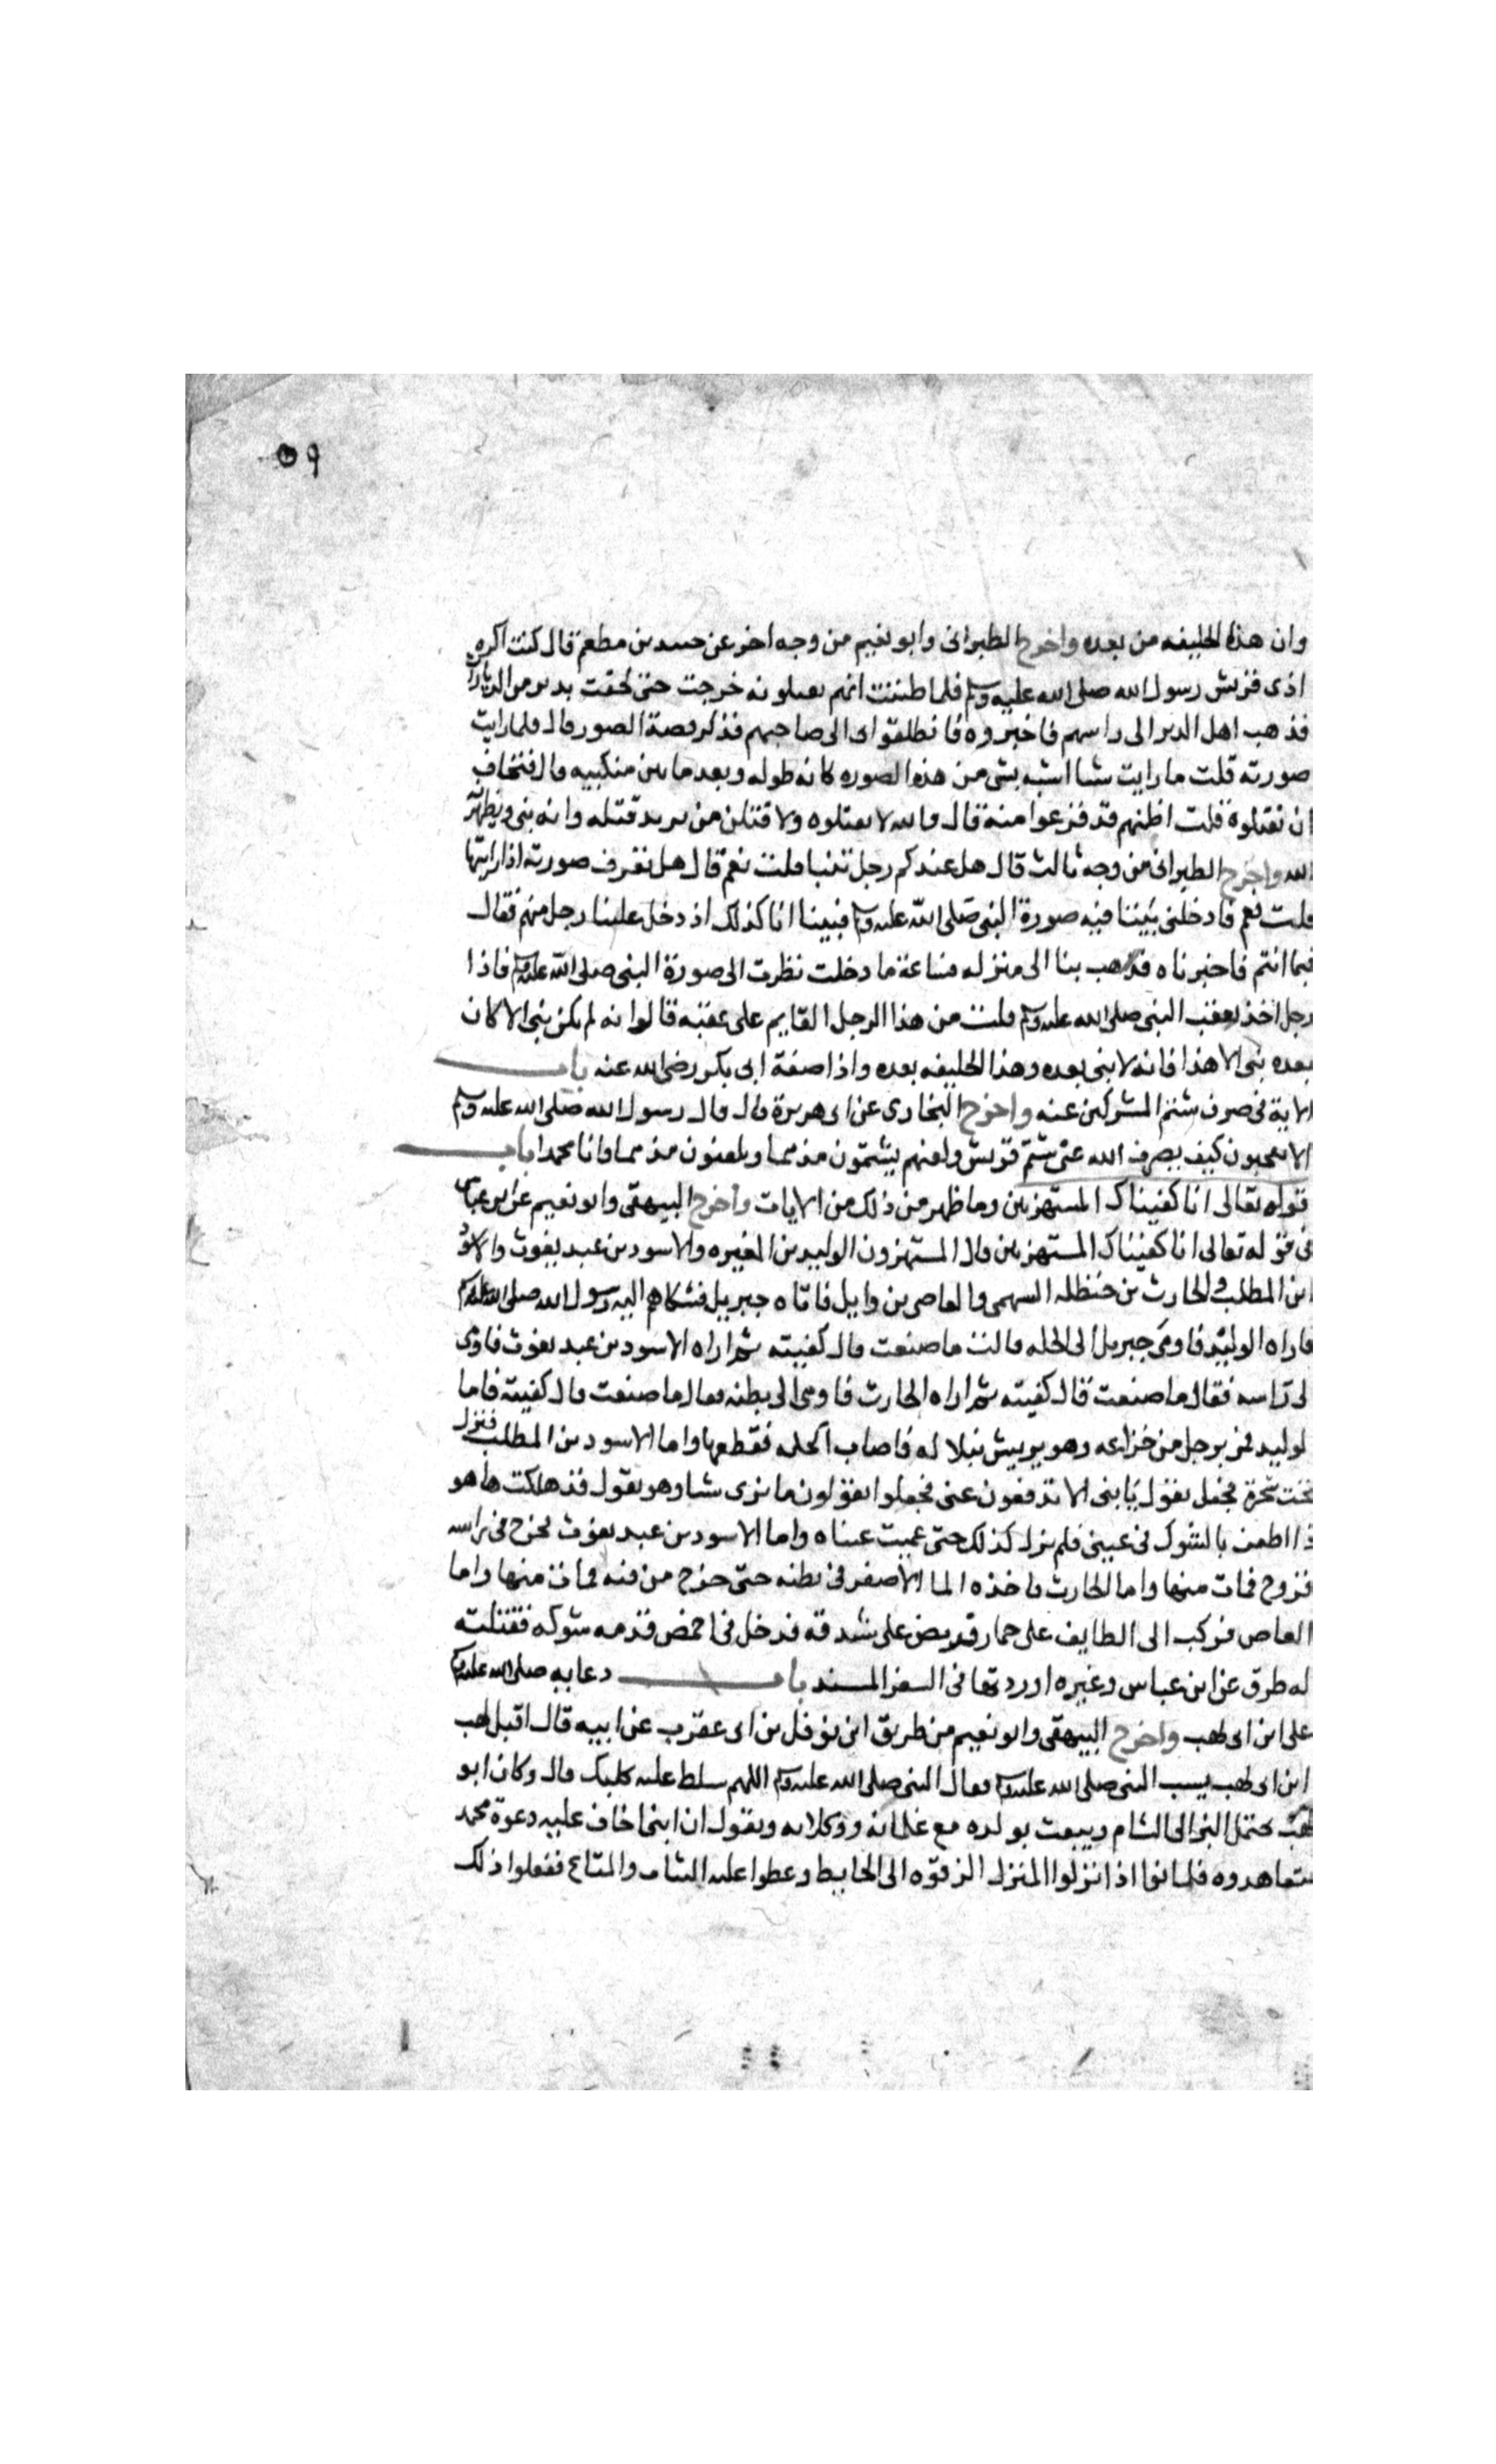 ٥٩
وان هذا الخليفه من بعده واخرج الطبرانى وابو نعيم من وجه اخر عن حسد بن مطعم قال كنت اكره
اذى قريش رسول الله صلى الله عليه وسلم فلما ظننت انهم يقتلونه خرجت حتى لحقت بدير من الديارات
فذهب اهل الدير الى راسهم فاخبروه فانطلقوا اى الى صاحبهم فذكر قصة الصور قال فلما رايت
صورته قلت ما رايت شيا اشبه بشى من هذه الصوره كانه طوله وبعد ما بين منكبيه قال فتخاف
ان تقتلوه قلت اظنهم قد فزعوا منه قال والله لا يقتلوه ولا قتلن من يريد قتله وانه نبى ويظهرنه
الله واخرج الطبرانى من وجه ثالث قال هل عندكم رجل تنبا قلت نعم قال هل تعرف صورته اذا رايتها
قلت نعم فادخلنى بيتا فيه صورة النبى صلى الله عليه وسلم فبينا انا كذلك اذ دخل علينا رجل منهم فقال
فيما انتم فاخبرناه فذهب بنا الى منزله فساعة ما دخلت نظرت الى صورة النبى صلى الله عليه وسلم فاذا
رجل اخذ بعقب النبى صلى الله عليه وسلم قلت من هذا الرجل القايم على عقبه قالوا انه لم يكن نبى الا كان
بعده نبى الا هذا فانه لا نبى بعده وهذا الخليفه بعده واذا صفة ابى بكر رضى الله عنه باب
الاية فى صرف شتم المشركين عنه واخرج البخارى عن ابى هريرة قال قال رسول الله صلى الله عليه وسلم
الا تعجبون كيف يصرف الله عنى شتم قريش ولعنهم يشتمون مذمما ويلعنون مذمما وانا محمدا باب
قوله تعالى انا كفيناك المستهزيين وما ظهر من ذلك من الايات واخرج البيهقى وابو نعيم عن ابن عباس
فى قوله تعالى انا كفيناك المستهزيين قال المستهزون الوليد بن المغيره والاسود بن عبد يغوث والاسود
ابن المطلب والحارث بن حنظله السهمى والعاصى بن وايل فاتاه جبريل فشكاهم اليه رسول الله صلى الله عليه وسلم
فاراه الوليد فاومى جبريل الى الحله قالت ما صنعت قال كفيته ثم اراه الاسود بن عبد يغوث فاومى
الى راسه فقال ما صنعت قال كفيته ثم اراه الحارث فاومى الى بطنه فقال ما صنعت قال كفيته فاما
لوليد فمر برجل من خزاعه وهو يريش نبلا له فاصاب اكحله فقطعها واما الاسود بن المطلب فنزل
تحت شجرة فجعل يقول يا بنى الا تدفعون عنى فجعلوا يقولون ما نرى شيا وهو يقول قد هلكت ها هو
ذا اطعن بالشوك فى عينى فلم يزل كذلك حتى عميت عيناه واما الاسود بن عبد يغوث فخرج فى راسه
قروح فمات منها واما الحارث فاخذه الما الاصفر فى بطنه حتى خرج من فيه فمات منها واما
العاص فركب الى الطايف على حمار فربض على شدقه فدخل فى اخمص قدمه شوكه فقتلته
له طرق عن ابن عباس وغيره اوردتها فى السفر المسند باب دعايه صلى الله عليه وسلم
على ابن ابى لهب واخرج البيهقى وابو نعيم من طريق ابن نوفل بن ابى عقرب عن ابيه قال اقبل لهب
ابن ابى لهب يسب النبى صلى الله عليه وسلم فقال النبى صلى الله عليه وسلم اللهم سلط عليه كلبك قال وكان ابو
لهب يحتمل البز الى الشام ويبعث بولده مع غلمانه ووكلايه ويقول ان ابنى اخاف عليه دعوة محمد
فتعاهدوه فكانوا اذا نزلوا المنزل الزقوه الى الحايط وغطوا عليه الثياب والمتاع ففعلوا ذلك